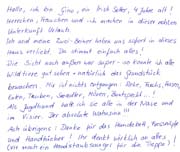 Hallo, ich bin Gino, ein Irish Setter, 4 Jahre alt!
Herrchen, Frauchen und ich machen in dieser netten
Unterkunft Urlaub.
Ich und meine Zwei-Beiner haben uns sofort in dieses
Haus verliebt. Da stimmt einfach alles!
Die Sicht nach außen war super - so konnte ich alle
Wildtiere gut sehen + natürlich das Grundstück
bewachen. Mir ist nichts entgangen: Rehe, Fuchs, Hasen,
Katzen, Tauben, Möwen, Buntspecht...!
Als Jagdhund hatte ich sie alle in der Nase und
im Visier. Der absolute Wahnsinn
Ach übrigens: Danke für das Hundebett, Fressnäpfe
und Handtücher! Ihr denkt wirklich an alles
(sie auch ein Handstaubsauger für die Treppe)!